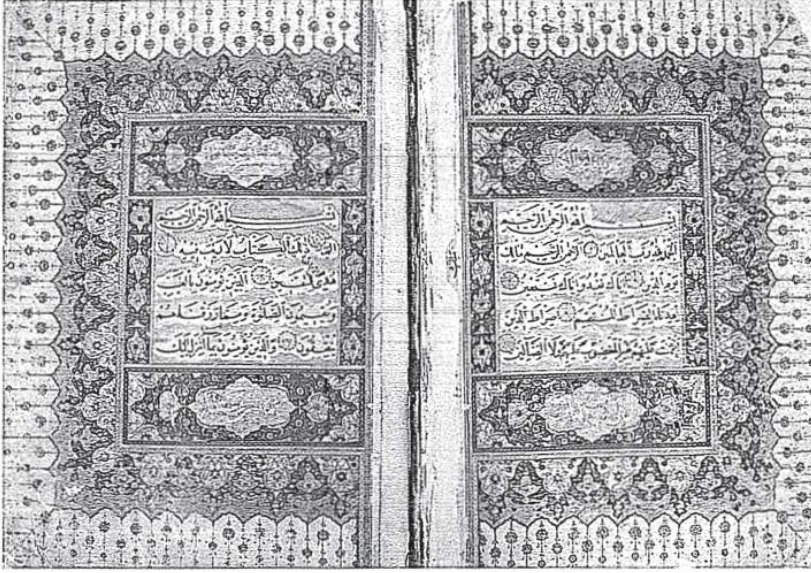 بسم الله الرحمن الرحيم
الحمد لله رب العالمين الرحمن الرحيم مالك
يوم الدين اياك نعبد واياك نستعين
اهدنا الصراط المستقيم صراط الذين
انعمت عليهم غير المغضوب عليهم ولا الضالين
بسم الله الرحمن الرحيم
الم ذلك الكتاب لا ريب فيه
هدى للمتقين الذين يؤمنون بالغيب
ويقيمون الصلوة ومما رزقناهم
ينفقون والذين يؤمنون بما انزل اليك